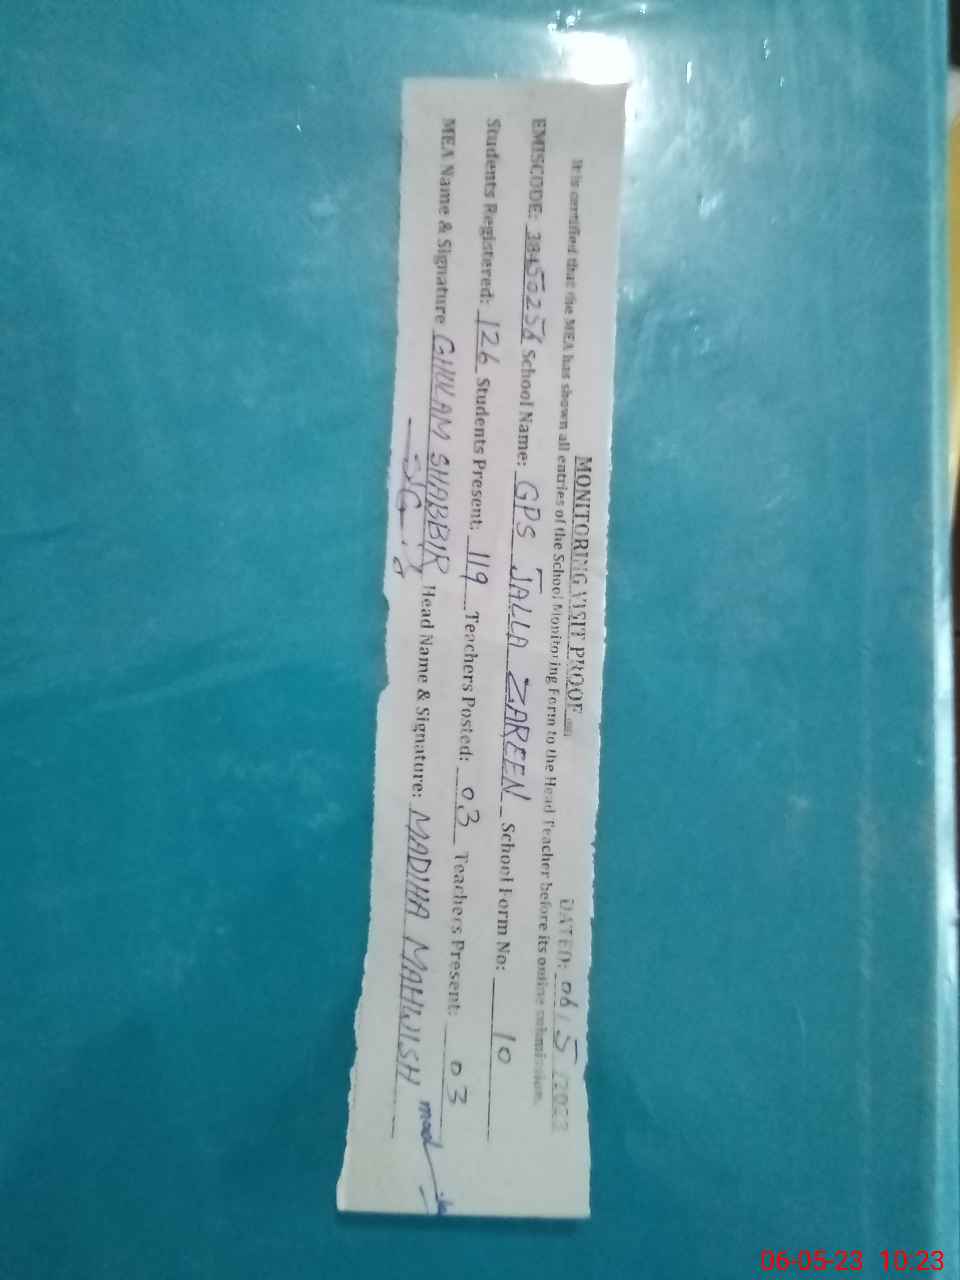 MONITORING VISIT PROOF
DATED: 06/5/2023
It is certified that the MEA has shown all entries of the School Monitoring Form to the Head Teacher before its online submission.
EMISCODE: 38450256 School Name: GPS JALLA ZAREEN School Form No: 10
Students Registered: 126 Students Present: 119 Teachers Posted: 03 Teachers Present: 03
MEA Name & Signature GHULAM SHABBIR Head Name & Signature: MADIHA MAHWISH
06-05-23 10:23